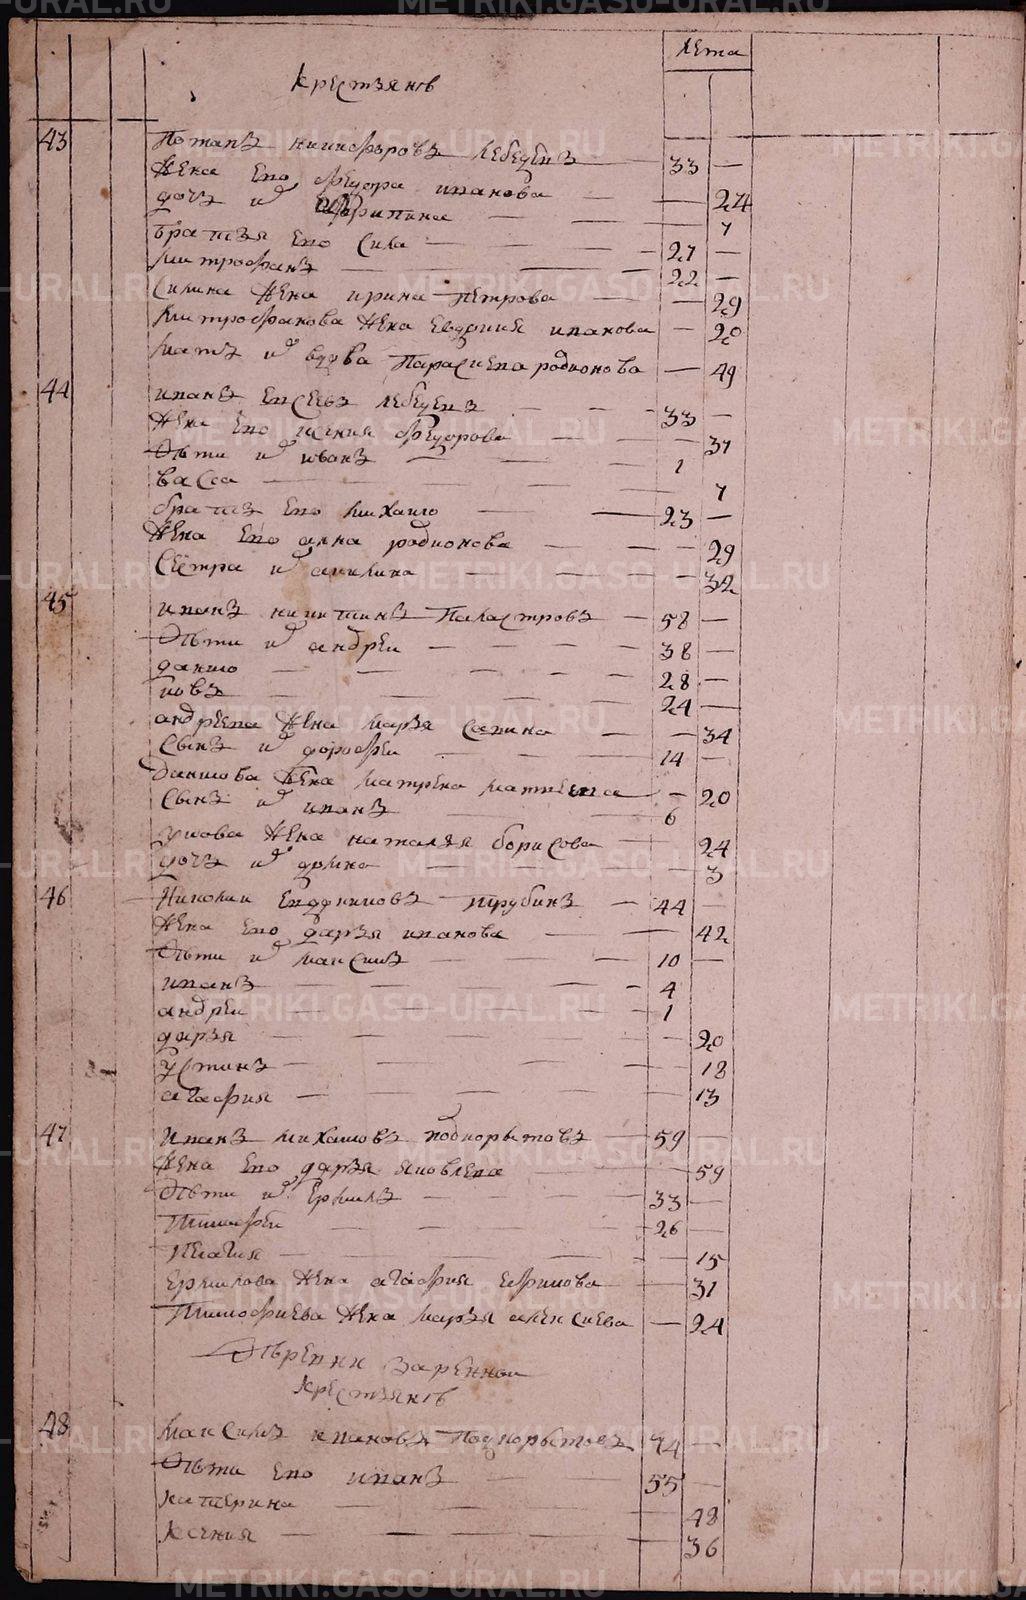 лета
крестьянъ
43 Потапъ никифоровъ лебедевъ — 33 —
жена ево федора иванова — — 24
дочь ихъ агрипина — — 7
братья ево Сила — 27 —
митрофанъ — 22 —
Силина жена ирина петрова — — 29
митрофанова жена евдокия иванова — 20
мать ихъ вдова Параскева родионова — 49
44 иванъ евсеевъ лебедевъ — 33 —
жена ево ксения федорова — — 37
дѣти ихъ иванъ — 1
васса — — 7
братъ ево михаило — 23 —
жена ево анна родионова — — 29
Сестра ихъ акилина — — 32
45 иванъ никитинъ Паластровъ — 58 —
дѣти ихъ андреи — 38 —
данило — 28 —
иовъ — 24 —
андреева жена марья савина — — 34
Сынъ ихъ дорофеи — 14 —
данилова жена матрена матвеева — 20
Сынъ ихъ иванъ — 6
жена наталья борисова — 24
дочь ихъ домна — 3
46 Николаи евдокимовъ трубинъ — 44 —
жена ево дарья иванова — — 42
дѣти ихъ максимъ — 10 —
иванъ — 4
андреи — 1
дарья — — 20
устинь — — 18
агафия — — 13
47 Иванъ михаиловъ подкорытовъ — 59 —
жена ево дарья яковлева — — 59
дѣти ихъ ермилъ — 33 —
тимофеи — 26 —
пелагия — — 15
ермилова жена агафия ефимова — 31
тимофиева жена марья алексиева — 24
дѣревни заречной
крестьянъ
48 максимъ ивановъ Подкорытовъ 74 —
дѣти ево иванъ — 55 —
катерина — — 48
ксения — — 36
METRIKI.GASO-URAL.RU